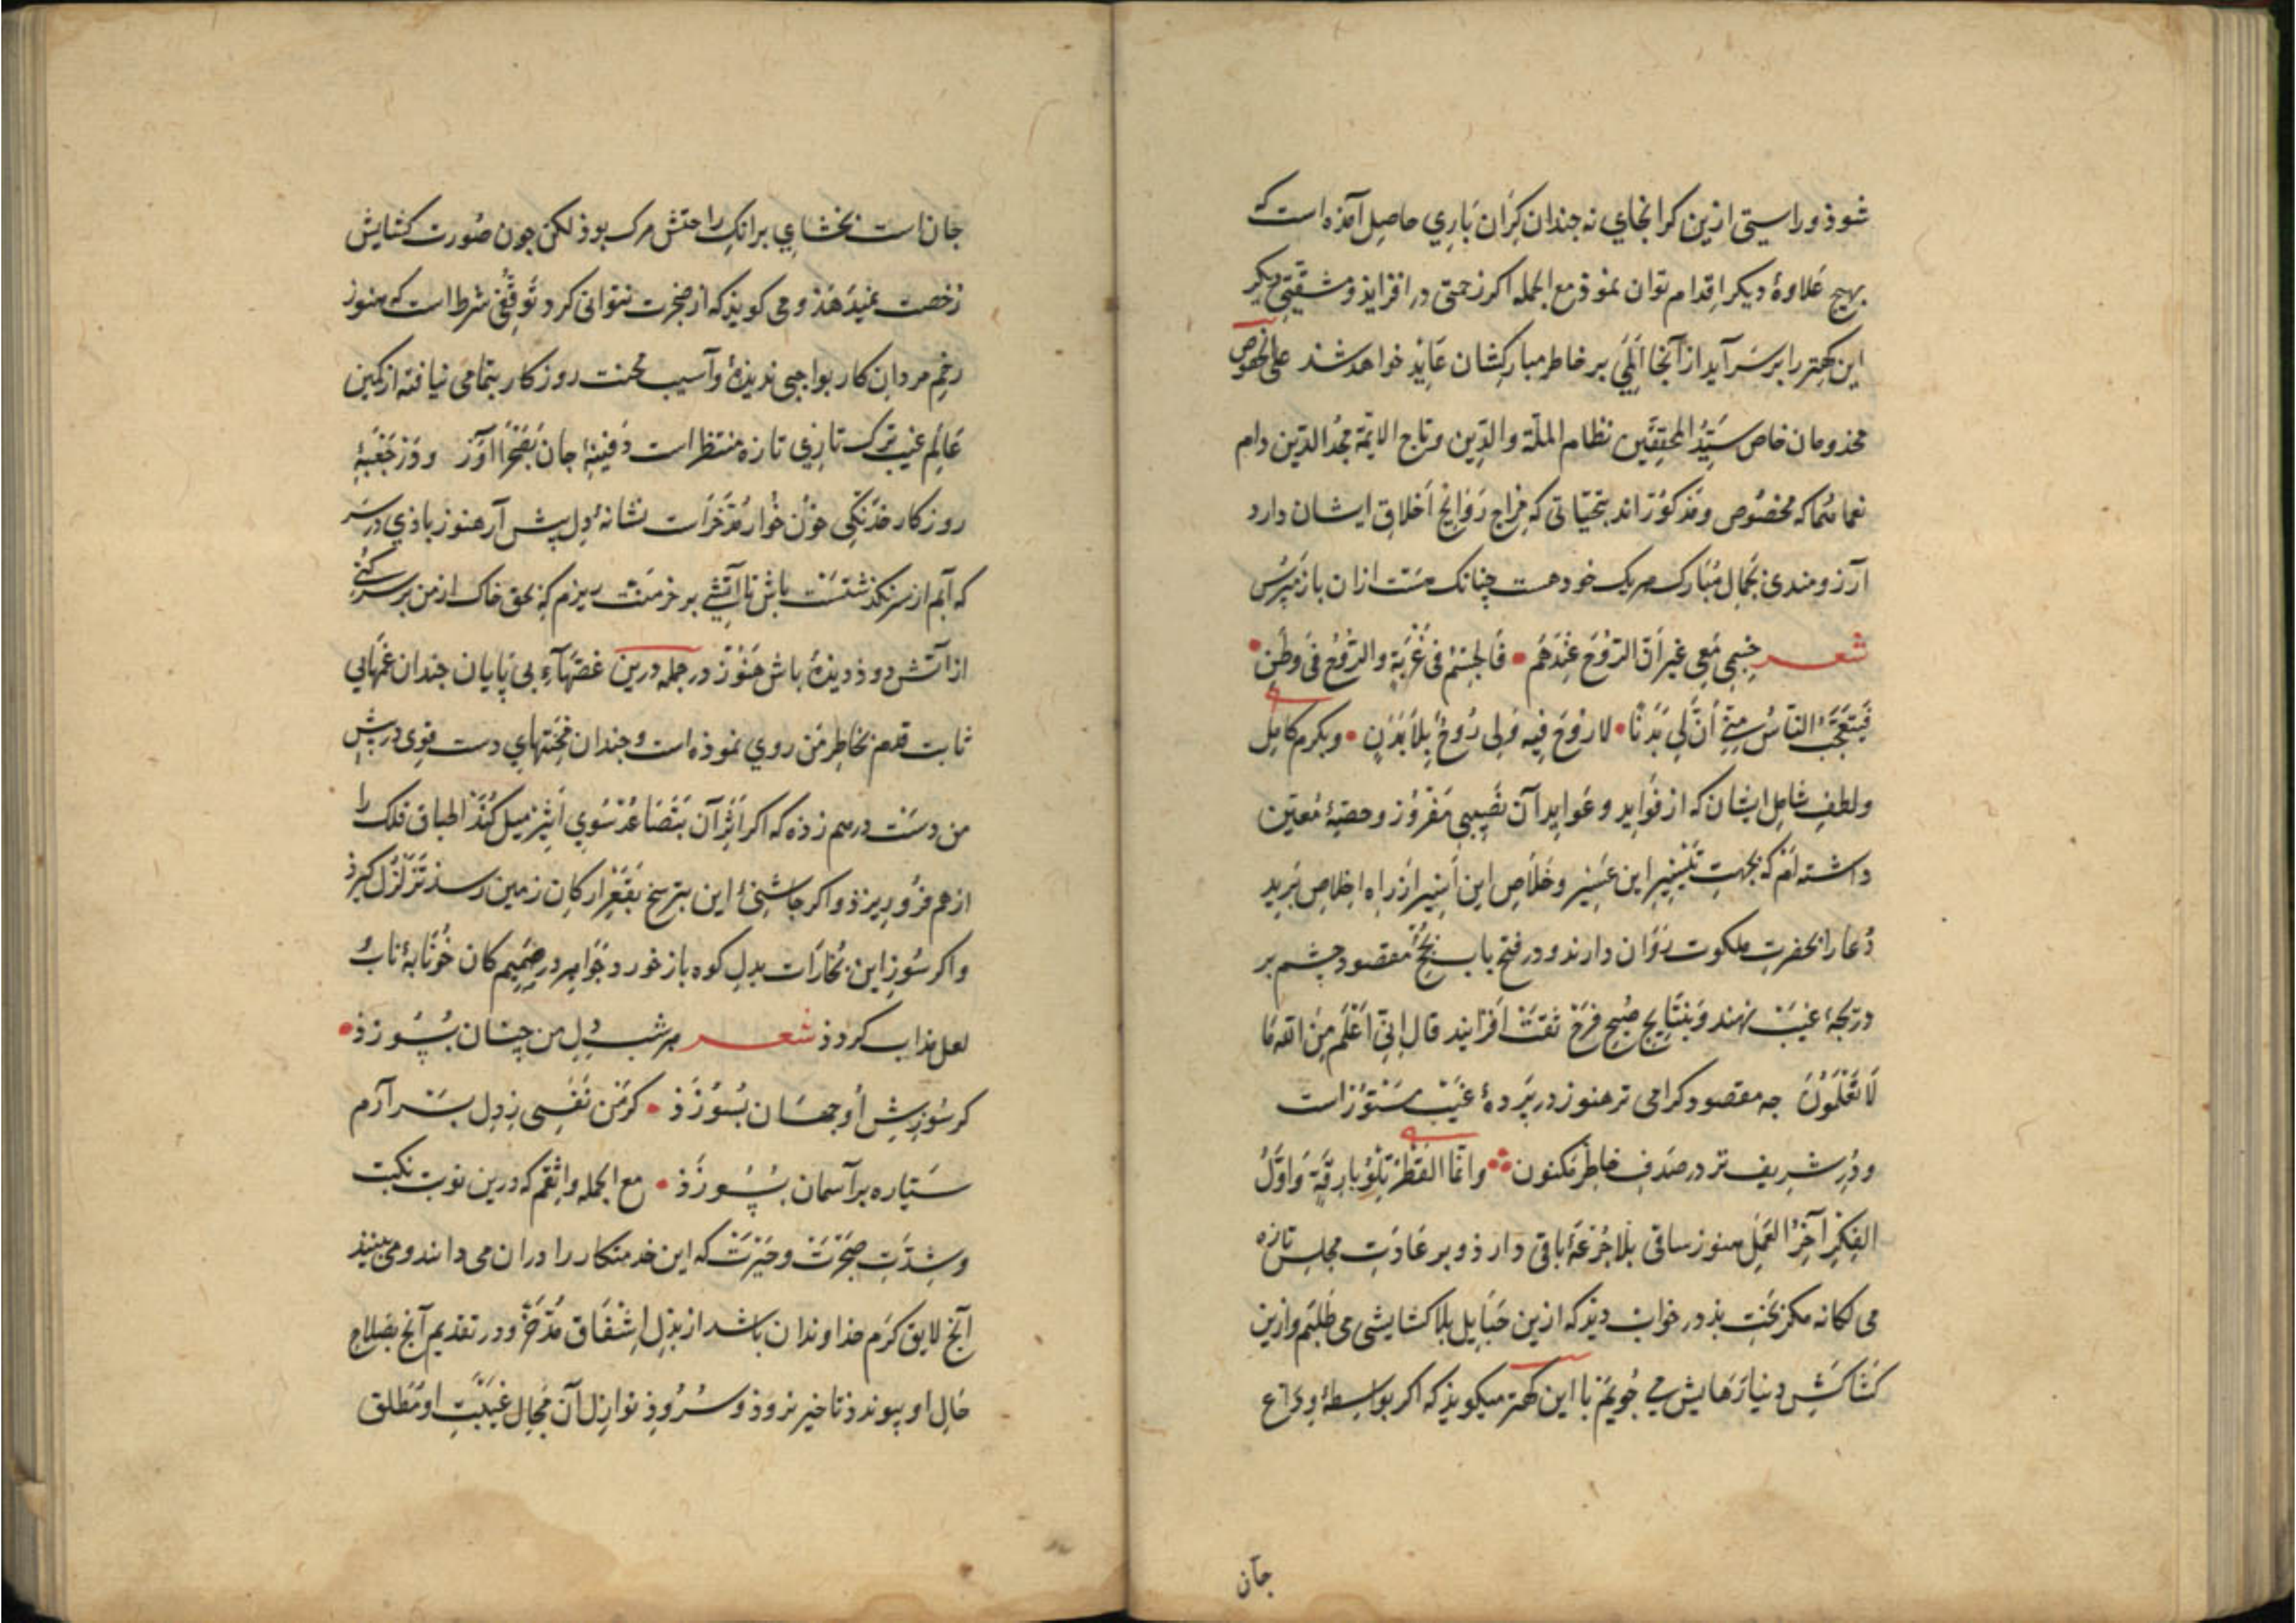 شوذ و راستی ازین کرانجای نه جندان کران باری حاصل آمذه است که
بهیج علاوهٔ دیکر اقدام توان نموذ مع الجمله اکر زحمتی در افزایذ و مشقتی دیکر
این کهتر را بر سر آید از آنجا المی بر خاطر مبارکشان عاید خواهد شد علی الخصوص
مخذومان خاص سید المحققین نظام الملة والدین و تاج الایمة مجد الدین دام
نعماٶهما که مخصوص و مذکور اند بتحیاتی که مزاج روایح اخلاق ایشان دارد
آرزومندی بجمال مبارک هر یک خود هست چنانک هست ازان باز مپرس
شعر جسمی معی غیر أن الروح عندهم • فالجسم فی غربة والروح فی وطن •
فیتعجب الناس منی أن لی بدنا • لا روح فیه ولی روح بلا بدن • و بکرم کامل
و لطف شامل ایشان که از فواید و عواید آن نصیبی مفروز و حصهٔ معین
داشته ام که بجهت تیسیر این عسیر و خلاص این اسیر از راه اخلاص برید
دعا را بحضرت ملکوت روان دارند و در فتح باب نجح مقصود چشم بر
دریجهٔ غیب نهند و بنتایج صبح فرح ثقت افزایند قال إنی اعلم من الله ما
لا تعلمون جه مقصود کرامی تر هنوز در پردهٔ غیب مستور است
و در شریف تر در صدف خاطر مکنون وانما القطر تلو بارقة و اول
الفکر آخر العمل هنوز ساقی بلا جرعهٔ باقی دارذ و بر عادت مجلس تازه
می کانه مکر بخت بذ در خواب دیذ که ازین حبایل بلا کشایشی می طلبم و ازین
کشاکش دنیا رهایش می جویم با این کهتر میکویذ که اکر بواسطهٔ وداع
جان
جان است بخشای بر انک راحتش مرک بوذ لکن جون صورت کشایش
رخصت نمیدهذ و می کویذ که از ضجرت نتوانی کرد توقف شرط است که هنوز
زخم مردان کار بواجبی ندیذهٔ و آسیب محنت روزکار بتمامی نیافتهٔ از کمین
عالم غیب ترک تازی تازه منتظر است دفینهٔ جان بصحرا آور و در جعبهٔ
روزکار خدنکی خون خوار مدخر است نشانهٔ دل پیش آر هنوز باذی در سر
که آبم از سر نکذشتست باش تا آتشی بر خرمنت ریزم که بحق خاک از من بر سر کنی
از آتش دوذ دیذهٔ باش هنوز در جمله درین غصهاء بی پایان جندان غمهای
ثابت قدم بخاطر من روی نموذه است و جندان محنتهای دست قوی در پیش
من دست درهم زذه که اکر اثر آن بتصاعد سوی اثیر میل کنذ اطباق فلک را
از هم فرو ریزذ و اکر چاشنی این بترسخ بقعر ارکان زمین رسذ تزلزل کیرذ
و اکر سوز این بخارات بدل کوه باز خورد جواهر در صمیم کان خونابهٔ ناب
لعل مذاب کردذ شعر هر شب دل من چنان بسوزذ •
کز سوزش او جهان بسوزذ • کر من نفسی ز دل بر آرم
ستیاره بر آسمان بسوزذ • مع الجمله واثقم که درین نوبت نکبت
و شدت ضجرت و حیرت که این خدمتکار را دران می دانند و می بینند
آنج لایق کرم خذاوندان باشد از بذل اشفاق مدخر و در تقدیم آنج بصلاح
حال او پیوندذ تاخیر نروذ و سروذ نوازل آن مجال غیبت او مطلق